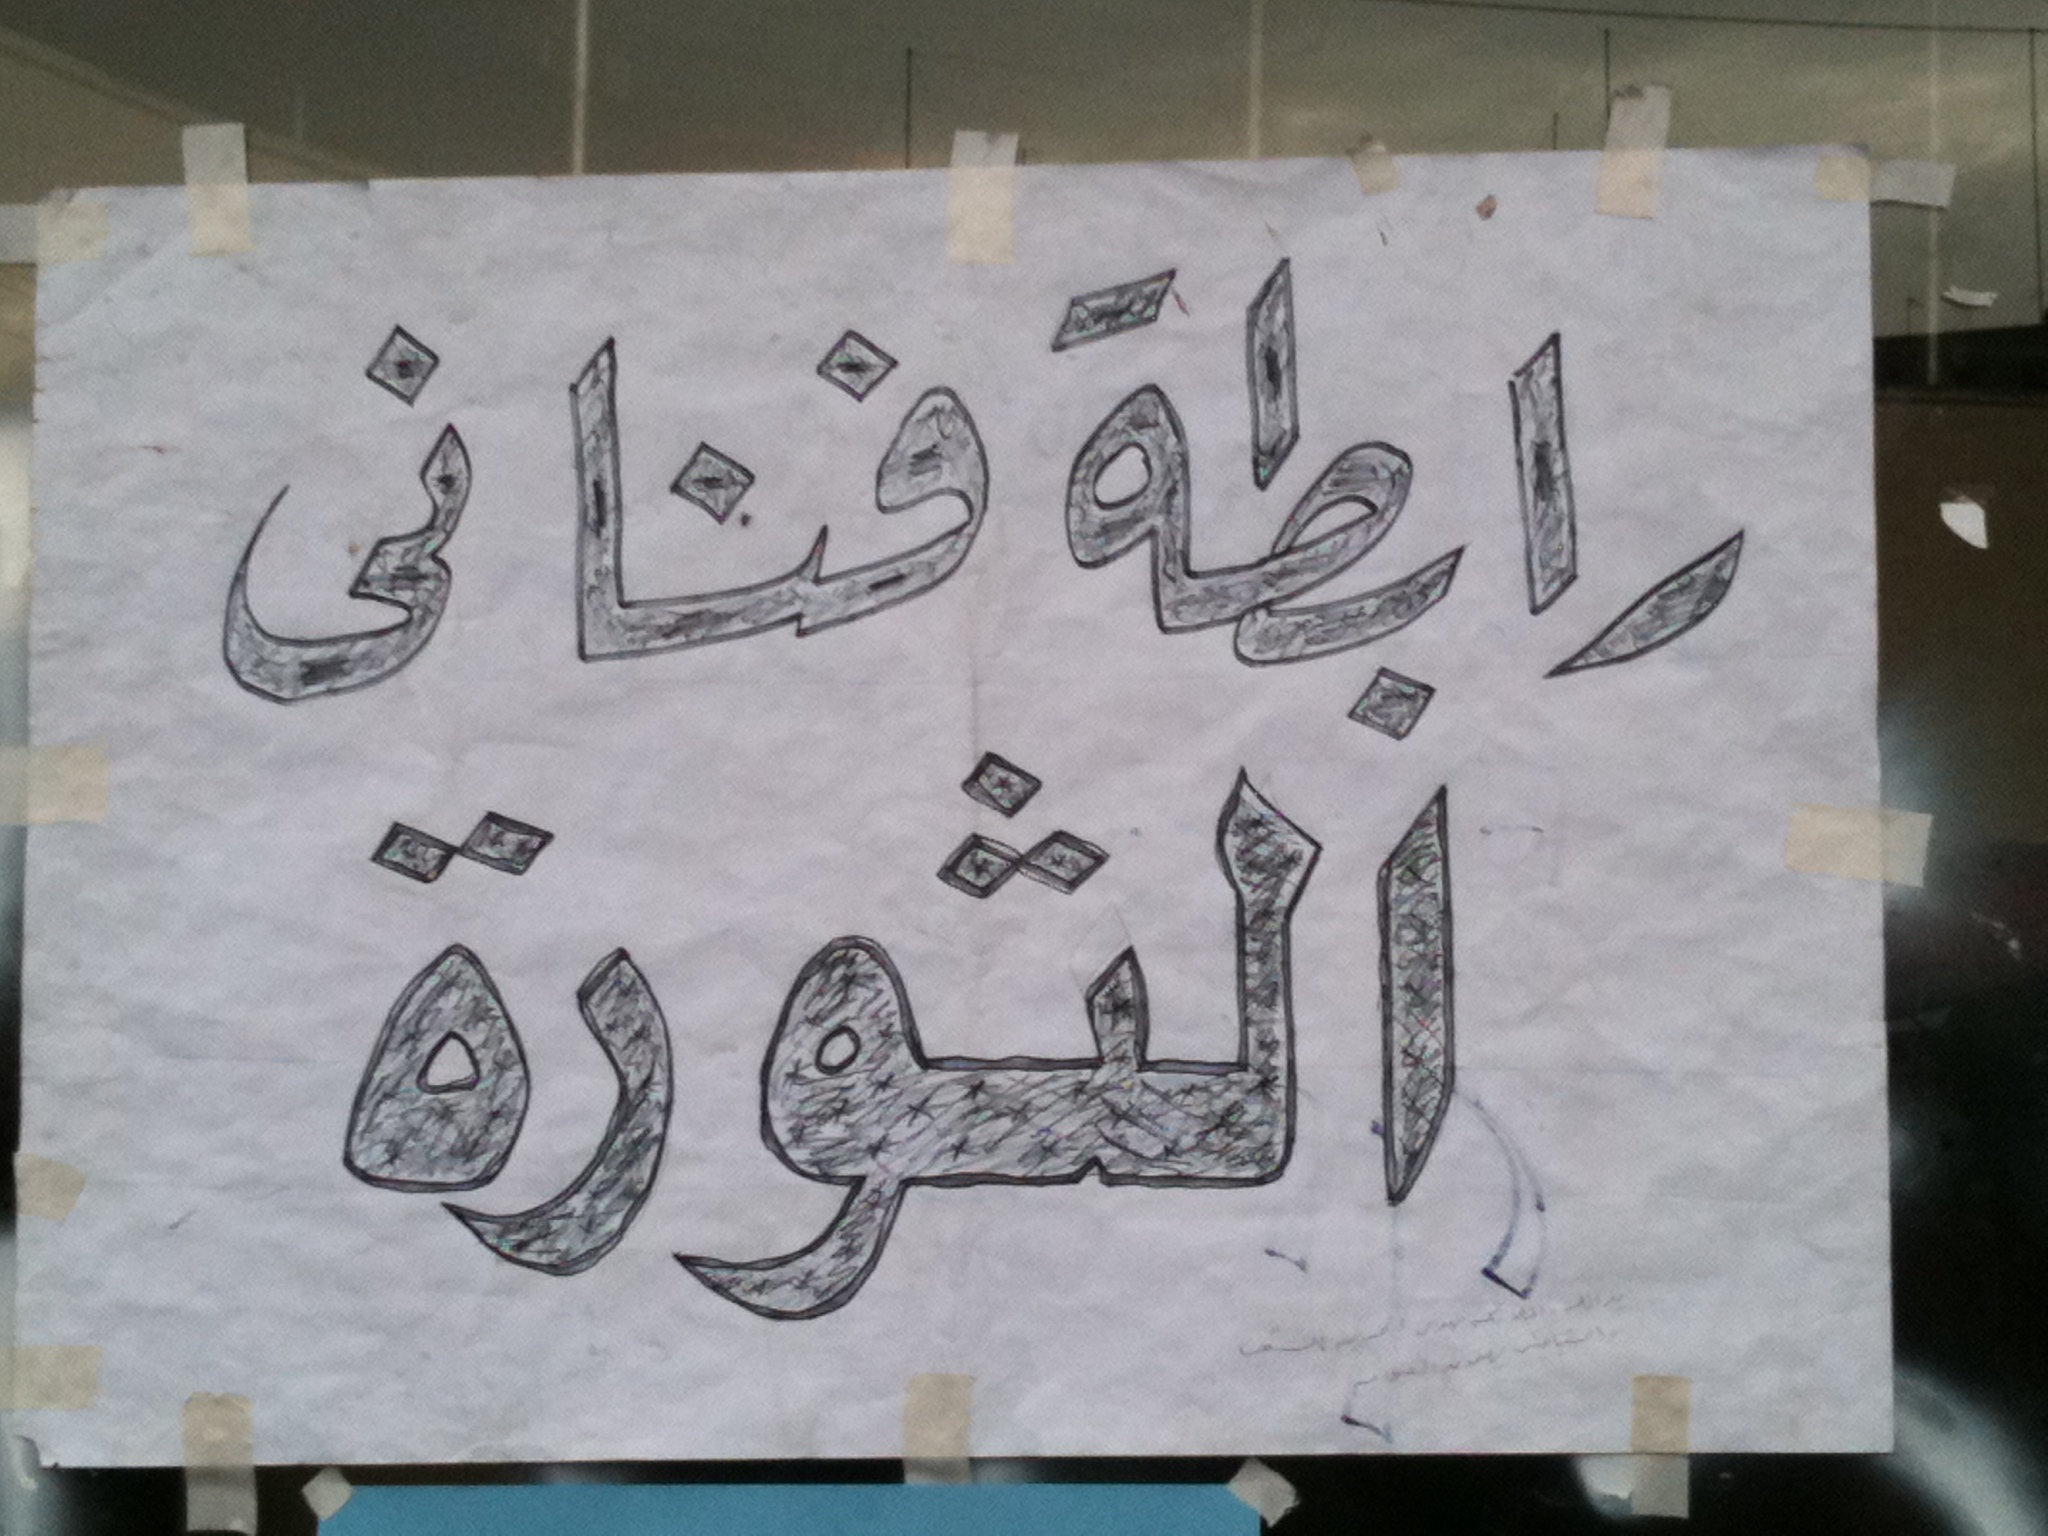 رابطة فنانى
الثورة